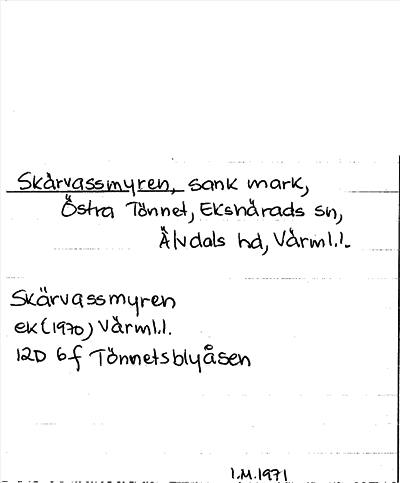 Skärvassmyren, sank mark,
Östra Tönnet, Ekshärads sn,
Älvdals hd, Värml.l.
Skärvassmyren
ek (1970) Värml.l.
12D 6f Tönnetsblyåsen
I.M.1971